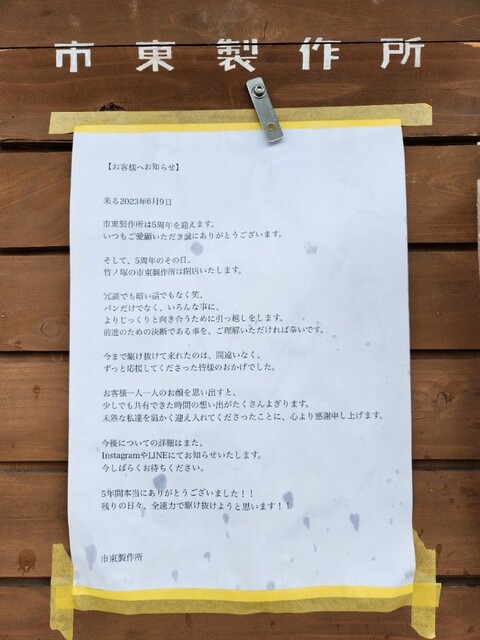 市東製作所
【お客様へお知らせ】
来る2023年6月9日
市東製作所は5周年を迎えます。
いつもご愛顧いただき誠にありがとうございます。
そして、5周年のその日、
竹ノ塚の市東製作所は閉店いたします。
冗談でも暗い話でもなく笑、
パンだけでなく、いろんな事に、
よりじっくりと向き合うために引っ越しをします。
前進のための決断である事を、ご理解いただければ幸いです。
今まで駆け抜けて来れたのは、間違いなく、
ずっと応援してくださった皆様のおかげでした。
お客様一人一人のお顔を思い出すと、
少しでも共有できた時間の想い出がたくさんよぎります。
未熟な私達を温かく迎え入れてくださったことに、心より感謝申し上げます。
今後についての詳細はまた、
InstagramやLINEにてお知らせいたします。
今しばらくお待ちください。
5年間本当にありがとうございました！！
残りの日々、全速力で駆け抜けようと思います！！
市東製作所